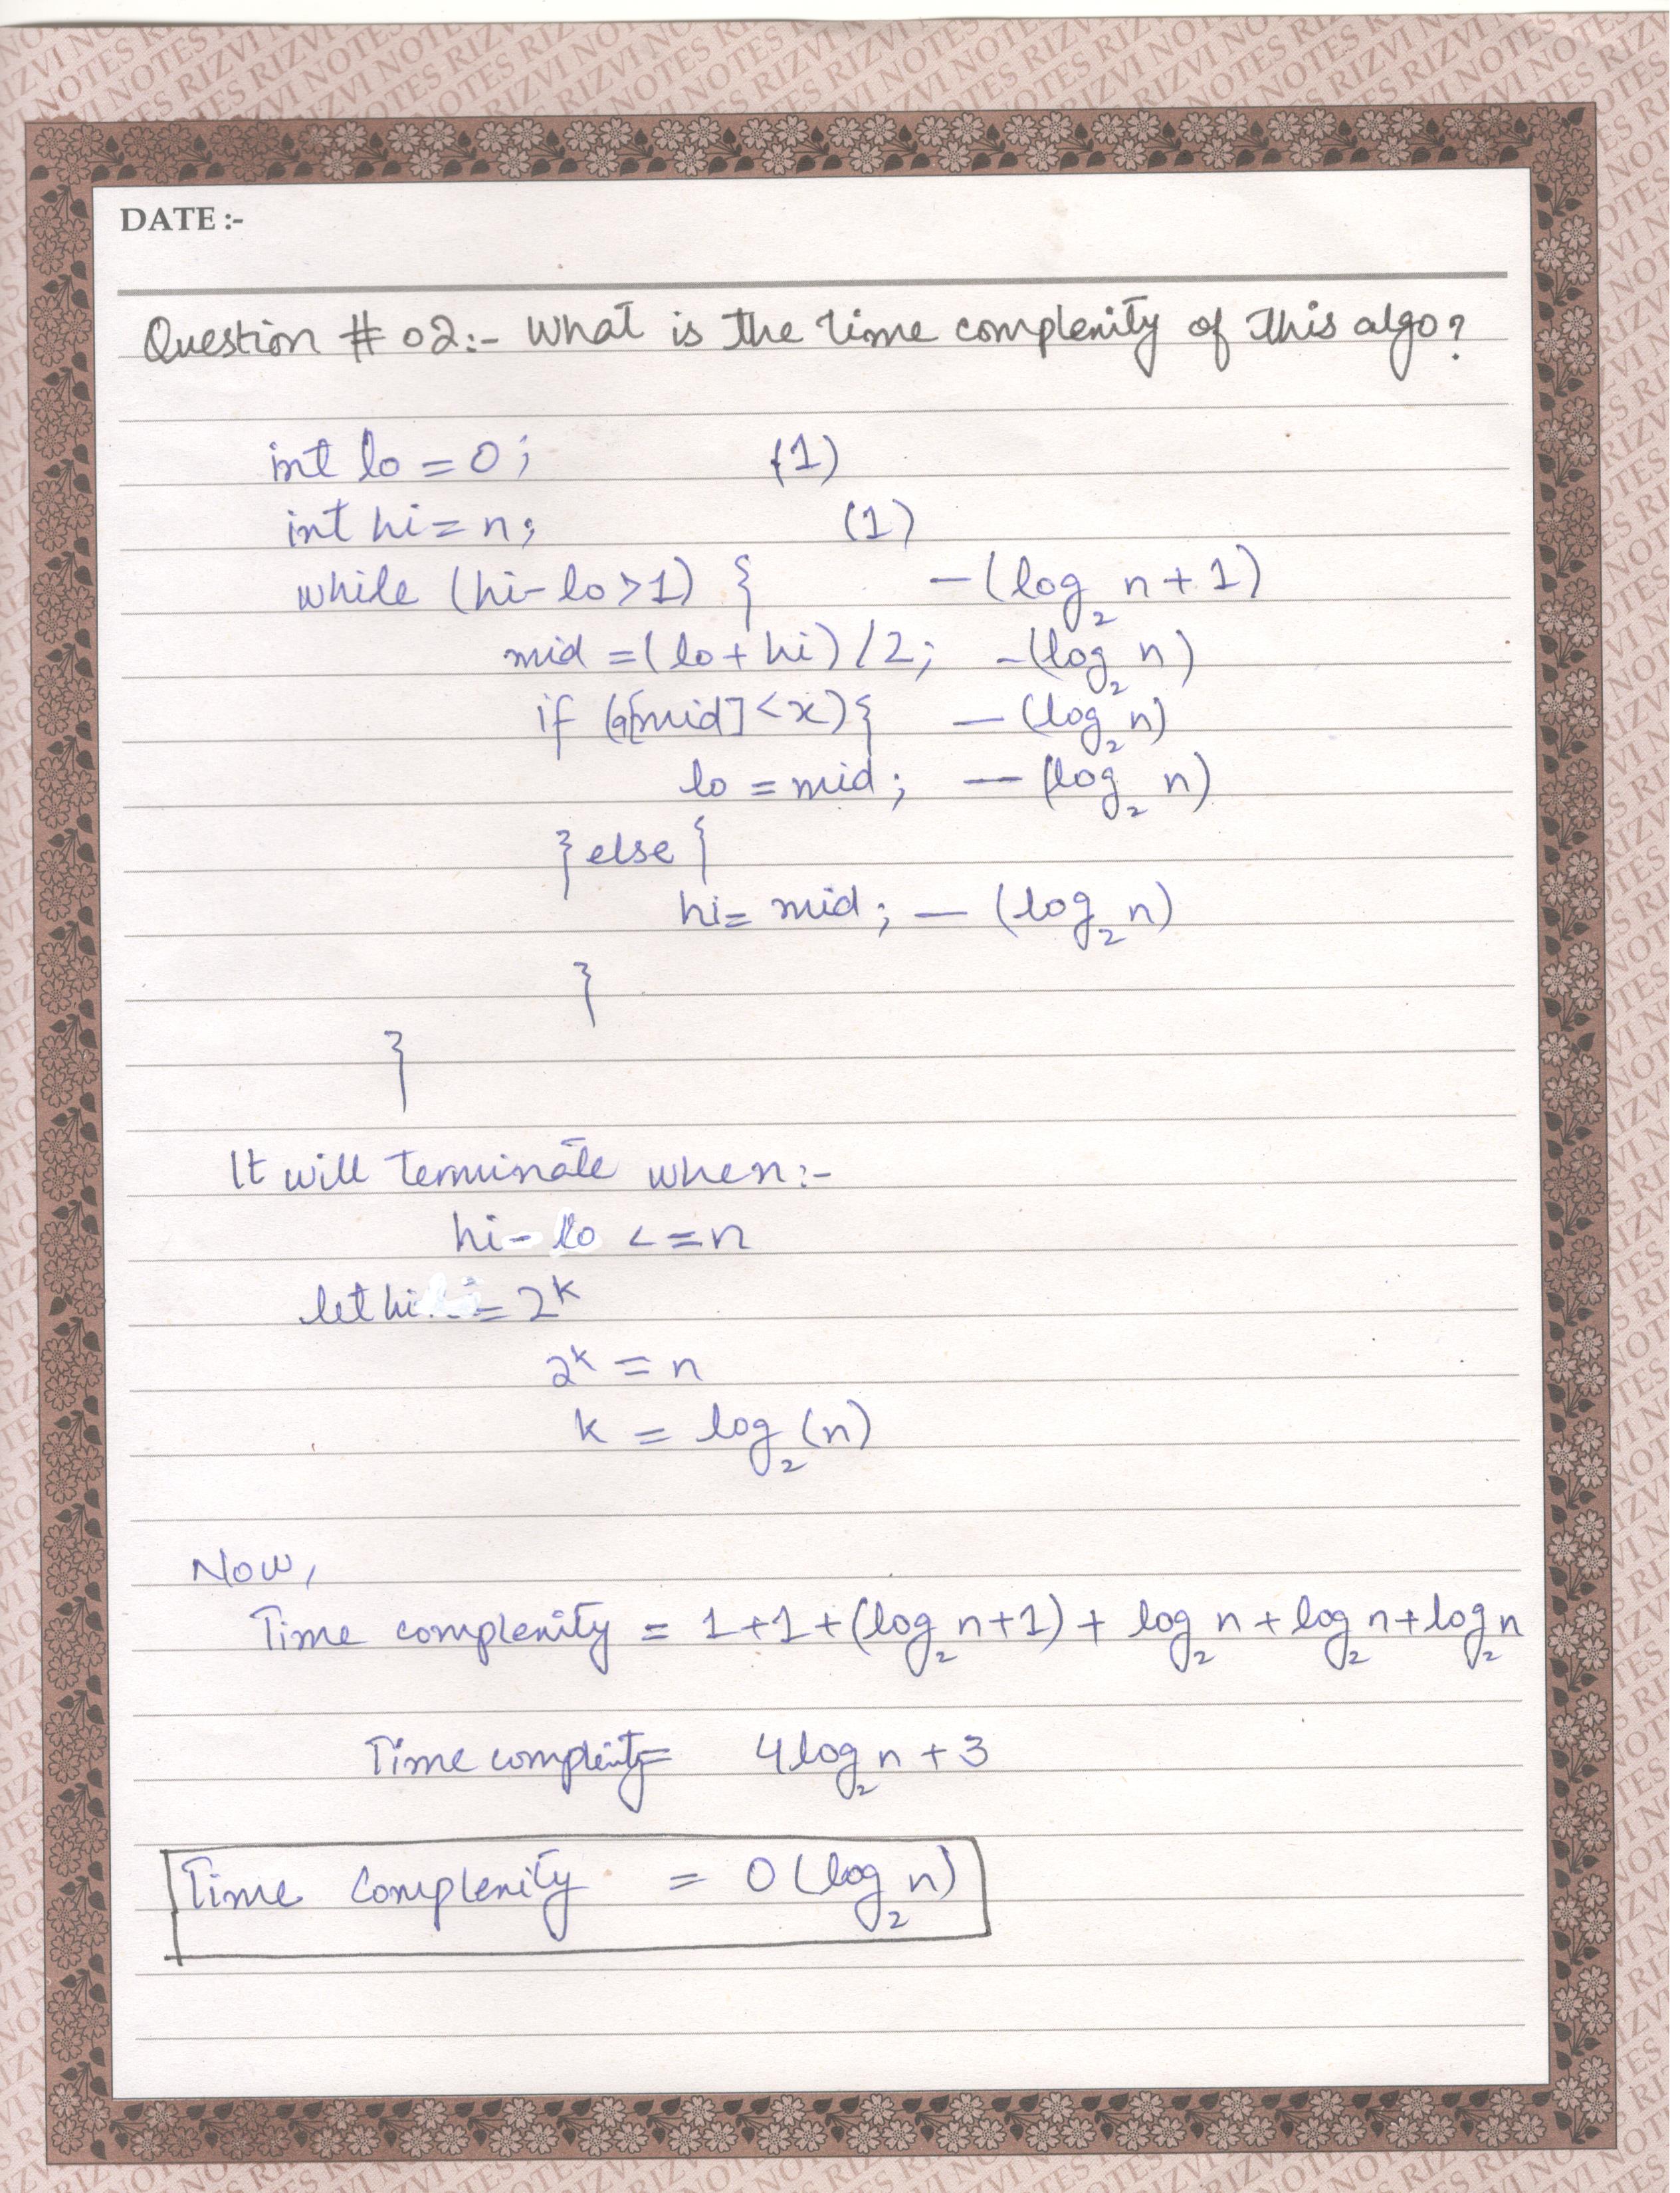 DATE :-
Question # 02:- What is the time complexity of this algo?
int lo = 0; (1)
int hi = n; (1)
while (hi-lo>1) { - (log₂ n+1)
mid = (lo + hi) / 2; - (log₂ n)
if (a[mid] < x) { - (log₂ n)
lo = mid; - (log₂ n)
} else {
hi = mid; - (log₂ n)
}
}
It will terminate when:-
hi - lo <= n
let hi = 2ᵏ
2ᵏ = n
k = log₂ (n)
Now,
Time complexity = 1+1+(log₂ n+1) + log₂ n + log₂ n + log₂ n
Time complexity = 4 log₂ n + 3
Time Complexity = O (log₂ n)
RIZVI NOTES